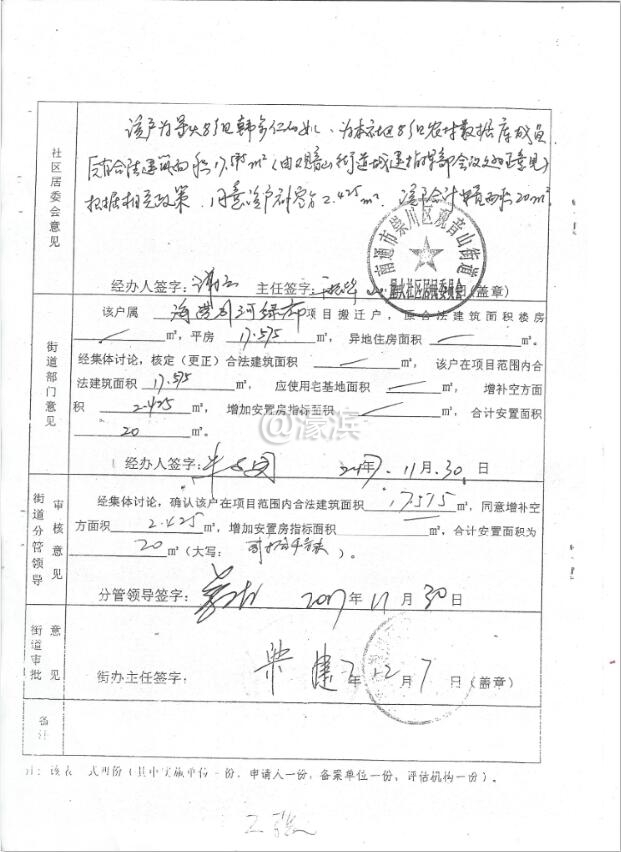 社区居委会意见
为本社区8组农村数据库成员
合法建筑面积17.575m²(由观音山街道城建
根据相关政策,同意该户补空方2.425m²,合计 面积20m²
南通市崇川区观音山街道
社区居民委员会
经办人签字: 主任签字: (盖章)
街道部门意见
该户属 项目搬迁户,原合法建筑面积楼房
㎡,平房 17.575 ㎡,异地住房面积 ㎡。
经集体讨论,核定(更正)合法建筑面积 ㎡,该户在项目范围内合
法建筑面积 17.575 ㎡,应使用宅基地面积 ㎡,增补空方面
积 2.425 ㎡,增加安置房指标面积 ㎡,合计安置面积
20 ㎡。
@濠滨
经办人签字: 2017年 11月 30日
街道分管领导
审核意见
经集体讨论,确认该户在项目范围内合法建筑面积 17.575 ㎡,同意增补空
方面积 2.425 ㎡,增加安置房指标面积 ㎡,合计安置面积为
20 ㎡(大写: )。
分管领导签字: 2017年 11月 30日
街道审批
意见
街办主任签字: 年 12月 7日(盖章)
备注
注:该表一式四份(其中实施单位一份,申请人一份,备案单位一份,评估机构一份)。